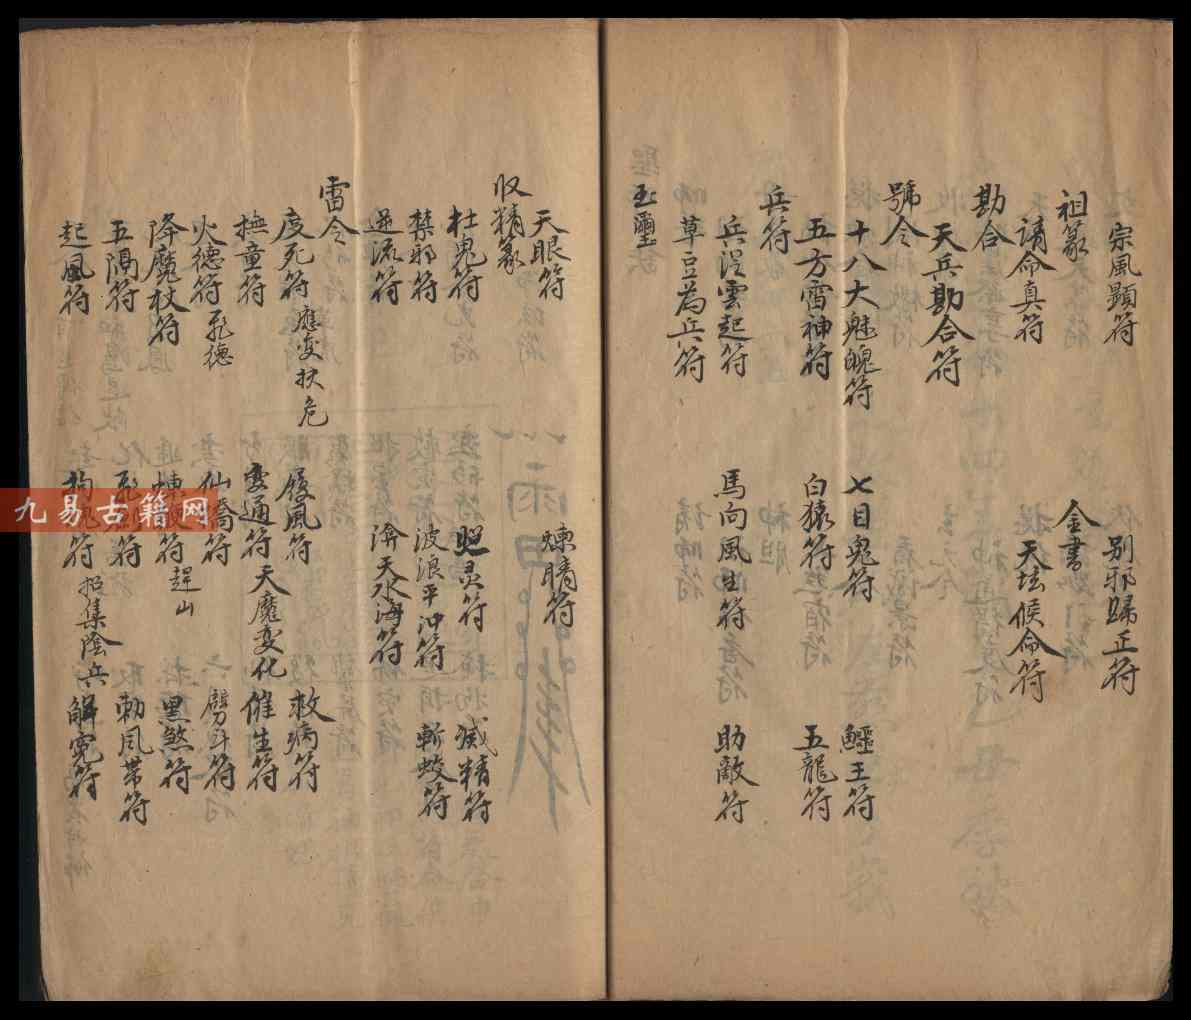 宗風顯符 别邪歸正符
祖篆 金書
請命真符 天坛候命符
勘合
天兵勘合符
號令
十八大魁魄符 七目鬼符 鱷王符
五方雷神符 白猿符 五龍符
兵符
兵從雲起符 馬向風生符 助敵符
草豆為兵符
玉璽
天眼符 煉睛符
收精篆
杜鬼符 照灵符 滅精符
禁邪符 波浪平沖符 斬蛟符
逆流符 渰天水海符
雷令
度死符 應变扶危 履風符 救病符
撫童符 灵通符 天魔变化 催生符
火德符 飛德 仙喬符 劈斗符
降魔杖符 煉鞭符 趕山 黑煞符
五陽符 符 勅風帶符
起風符 符 招集陰兵 解寃符
九易古籍网